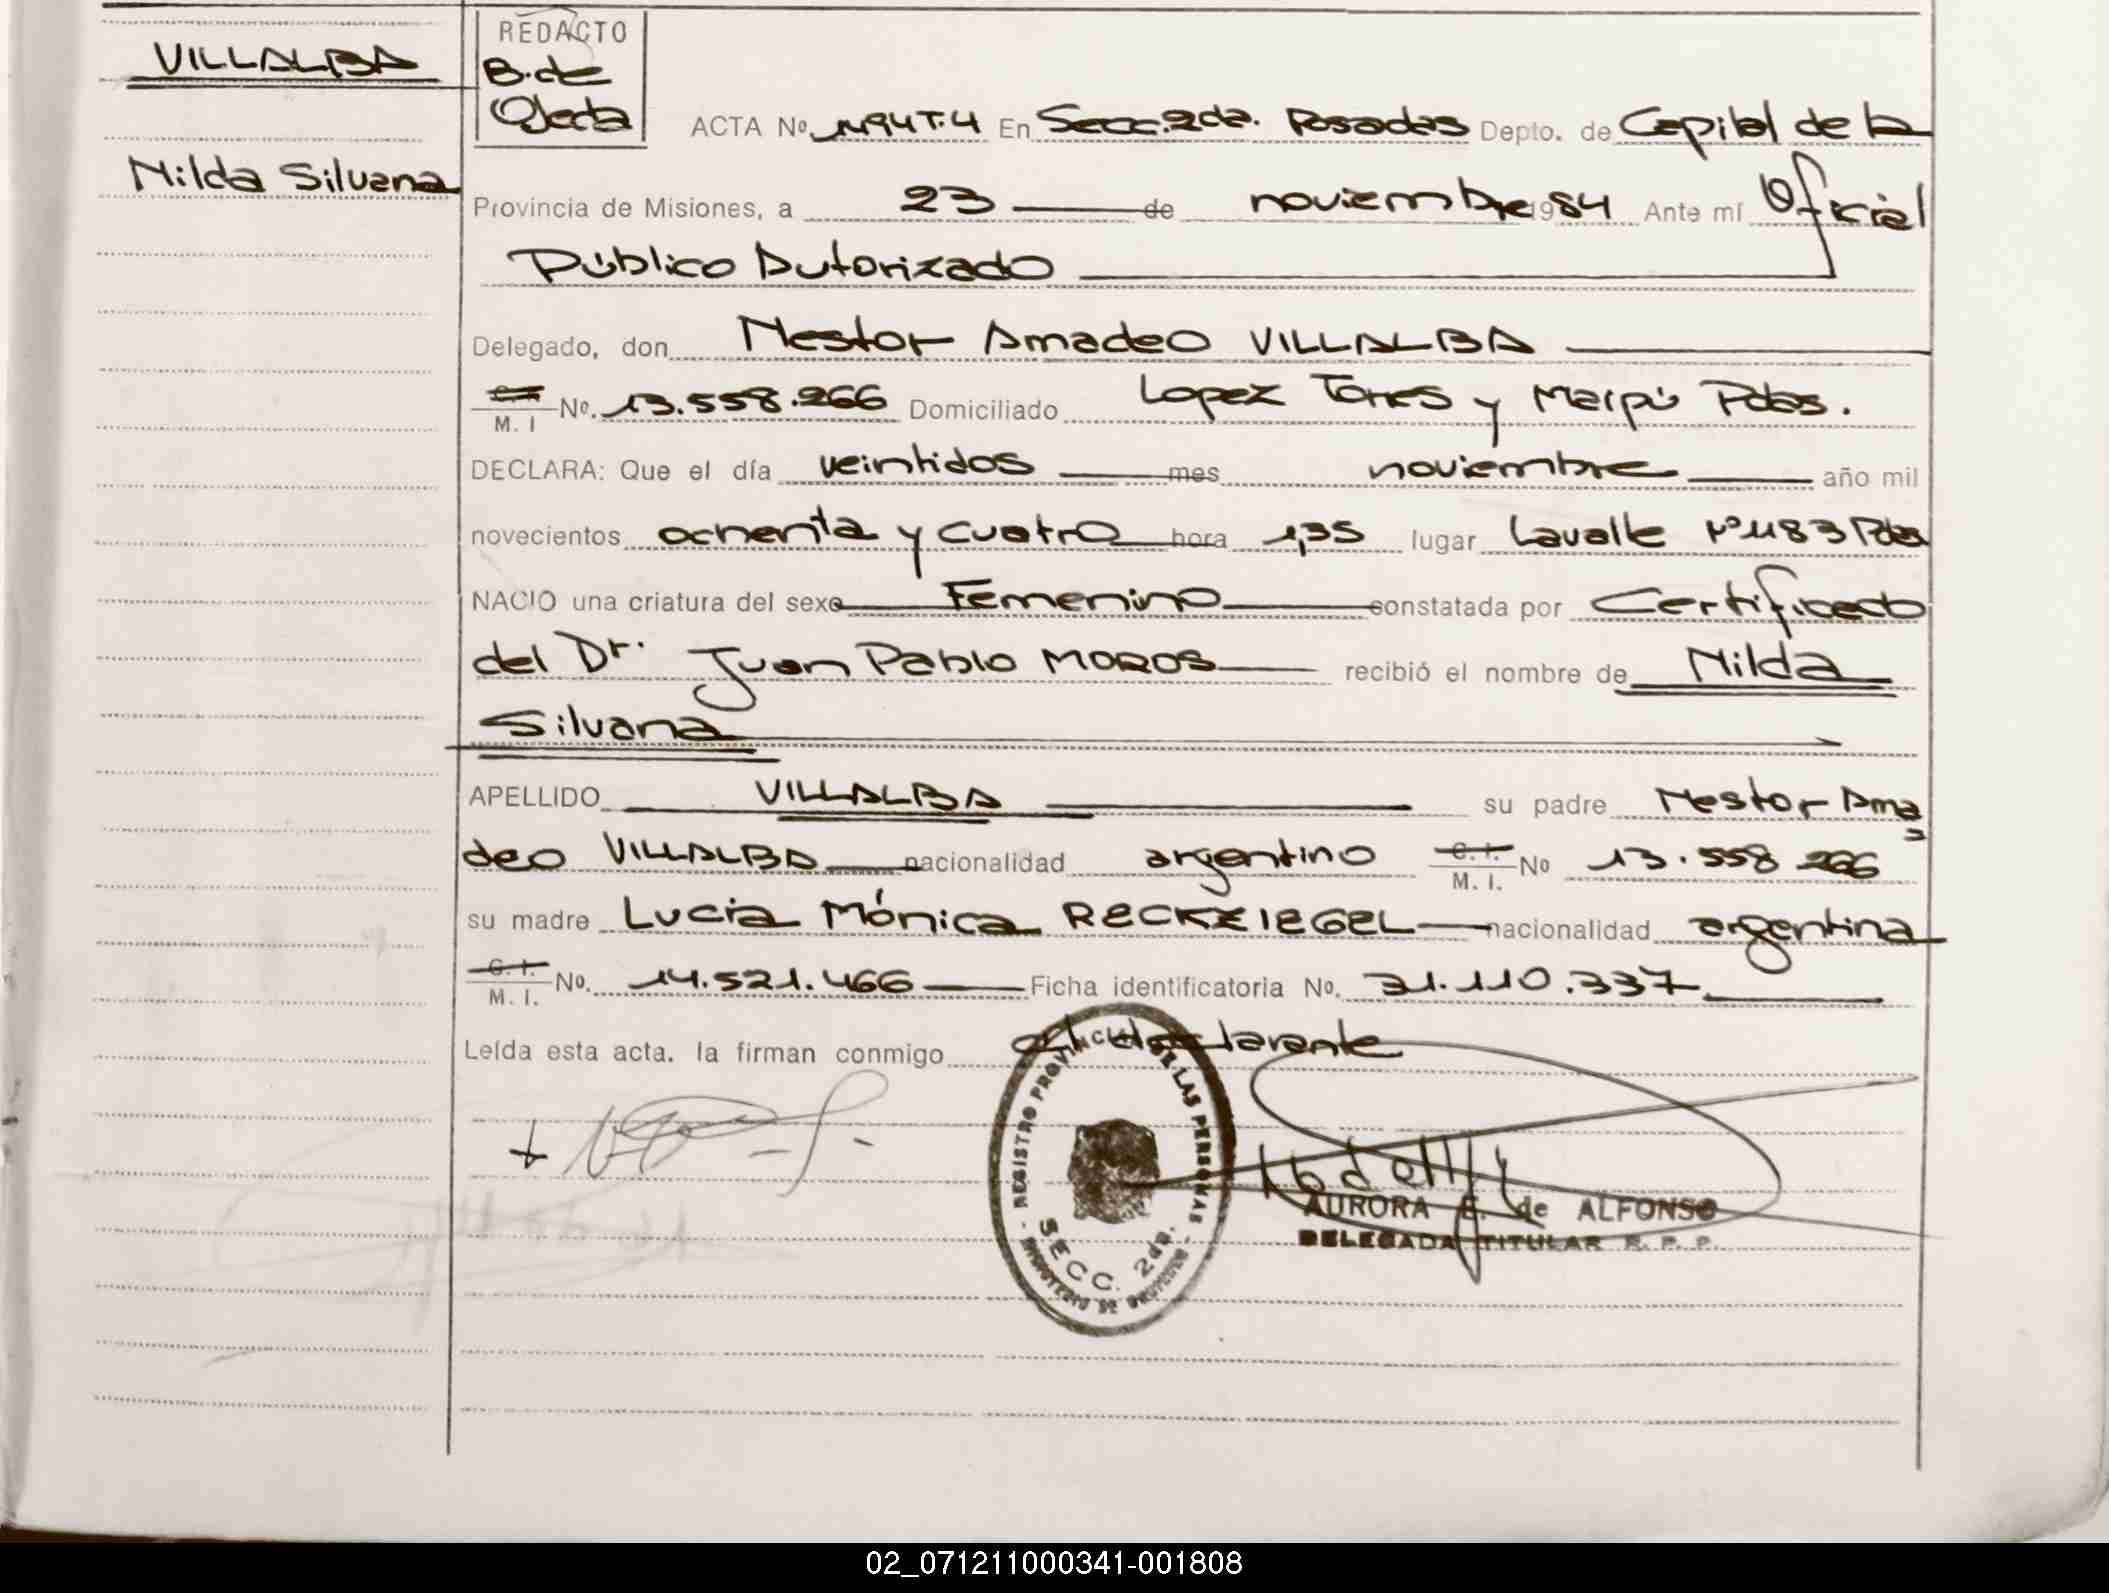 VILLALBA
Nilda Silvana
REDACTO
B. de
Ojeda
ACTA Nº 1194 T.4 En Secc. 2da. Posadas Depto. de Capital de la
Provincia de Misiones, a 23 de noviembre 1984 Ante mí Oficial
Público Autorizado
Delegado, don Nestor Amadeo VILLALBA
C.I. M. I Nº. 13.558.266 Domiciliado Lopez Torres y Maipú Pdas.
DECLARA: Que el día veintidos mes noviembre año mil
novecientos ochenta y cuatro hora 1,35 lugar Lavalle Nº 1183 Pdas
NACIO una criatura del sexo Femenino constatada por Certificado
del Dr. Juan Pablo MOROS recibió el nombre de Nilda
Silvana
APELLIDO VILLALBA su padre Nestor Ama
deo VILLALBA nacionalidad argentino C. I. M. I. No 13.558 266
su madre Lucia Mónica RECKZIEGEL nacionalidad argentina
C. I. M. I. No. 14.521.466 Ficha identificatoria No. 31.110.337
Leída esta acta. la firman conmigo el declarante
REGISTRO PROVINCIAL DE LAS PERSONAS
SECC. 2da.
MINISTERIO DE GOBIERNO
AURORA E. de ALFONSO
DELEGADA TITULAR R. P. P.
02_071211000341-001808